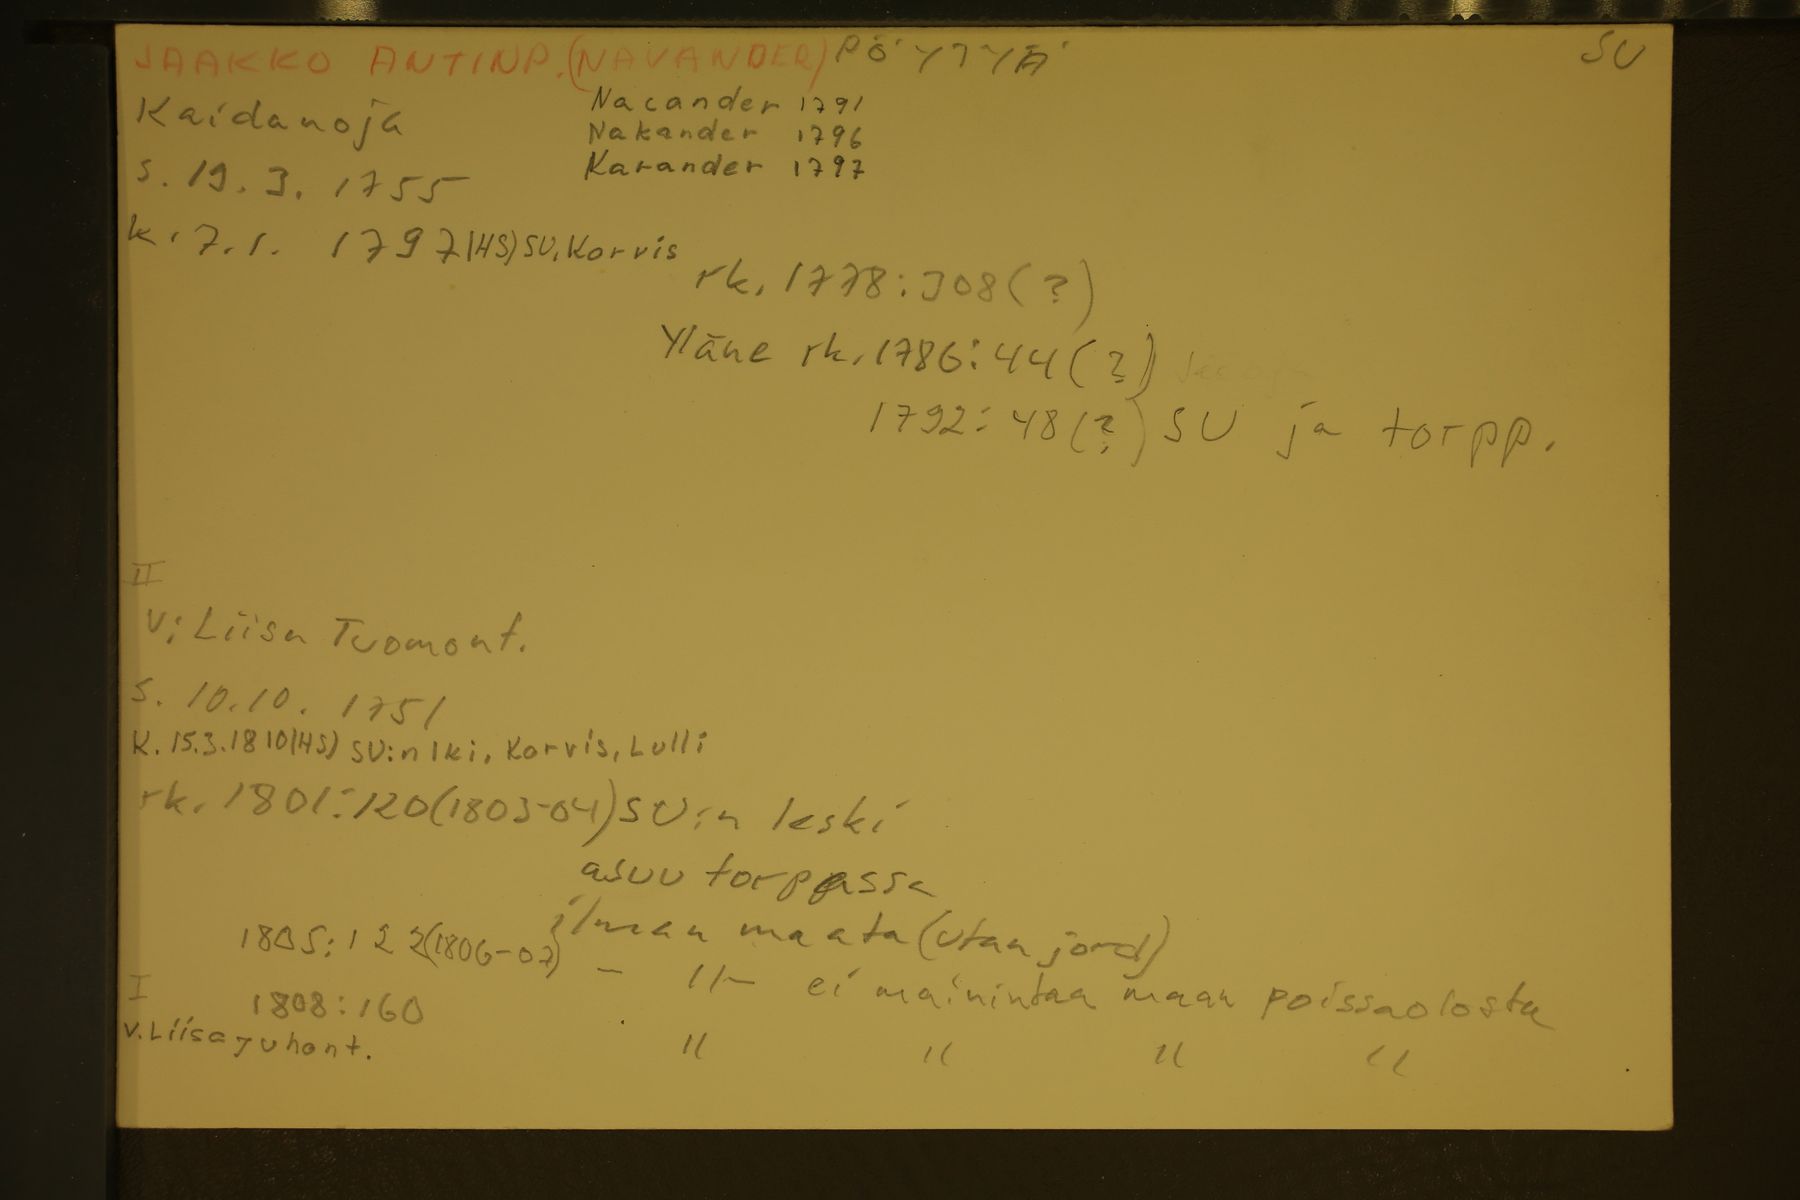 JAAKKO ANTINP. (NAVANDER) PÖYTYÄ SU
Kaidanoja
Nacander 1791
Nakander 1796
Karander 1797
s. 19.3. 1755
k. 7.1. 1797 (HS) SU, Korvis
rk. 1778:308 (?)
Yläne rk. 1786:44 (?)
1792:48 (?) SU ja torpp.
II
v: Liisa Tuomont.
s. 10.10. 1751
K. 15.3.1810 (HS) SU:n lki, Korvis, Lulli
rk. 1801:120 (1803-04) SU:n leski
asuu torpassa
ilman maata (utan jord)
1805:122 (1806-07) - 11- ei mainintaa maan poissaolosta
I
1808:160 " " " "
v. Liisa Juhont.